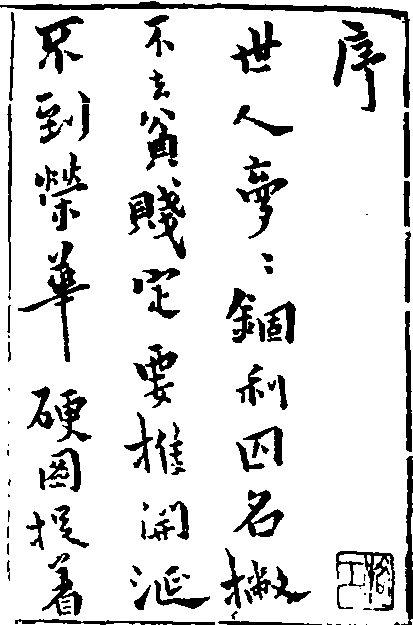 序
世人夢〻錮利囚名撇
不去貧賤定要推開涎
不到榮華硬圖捉着